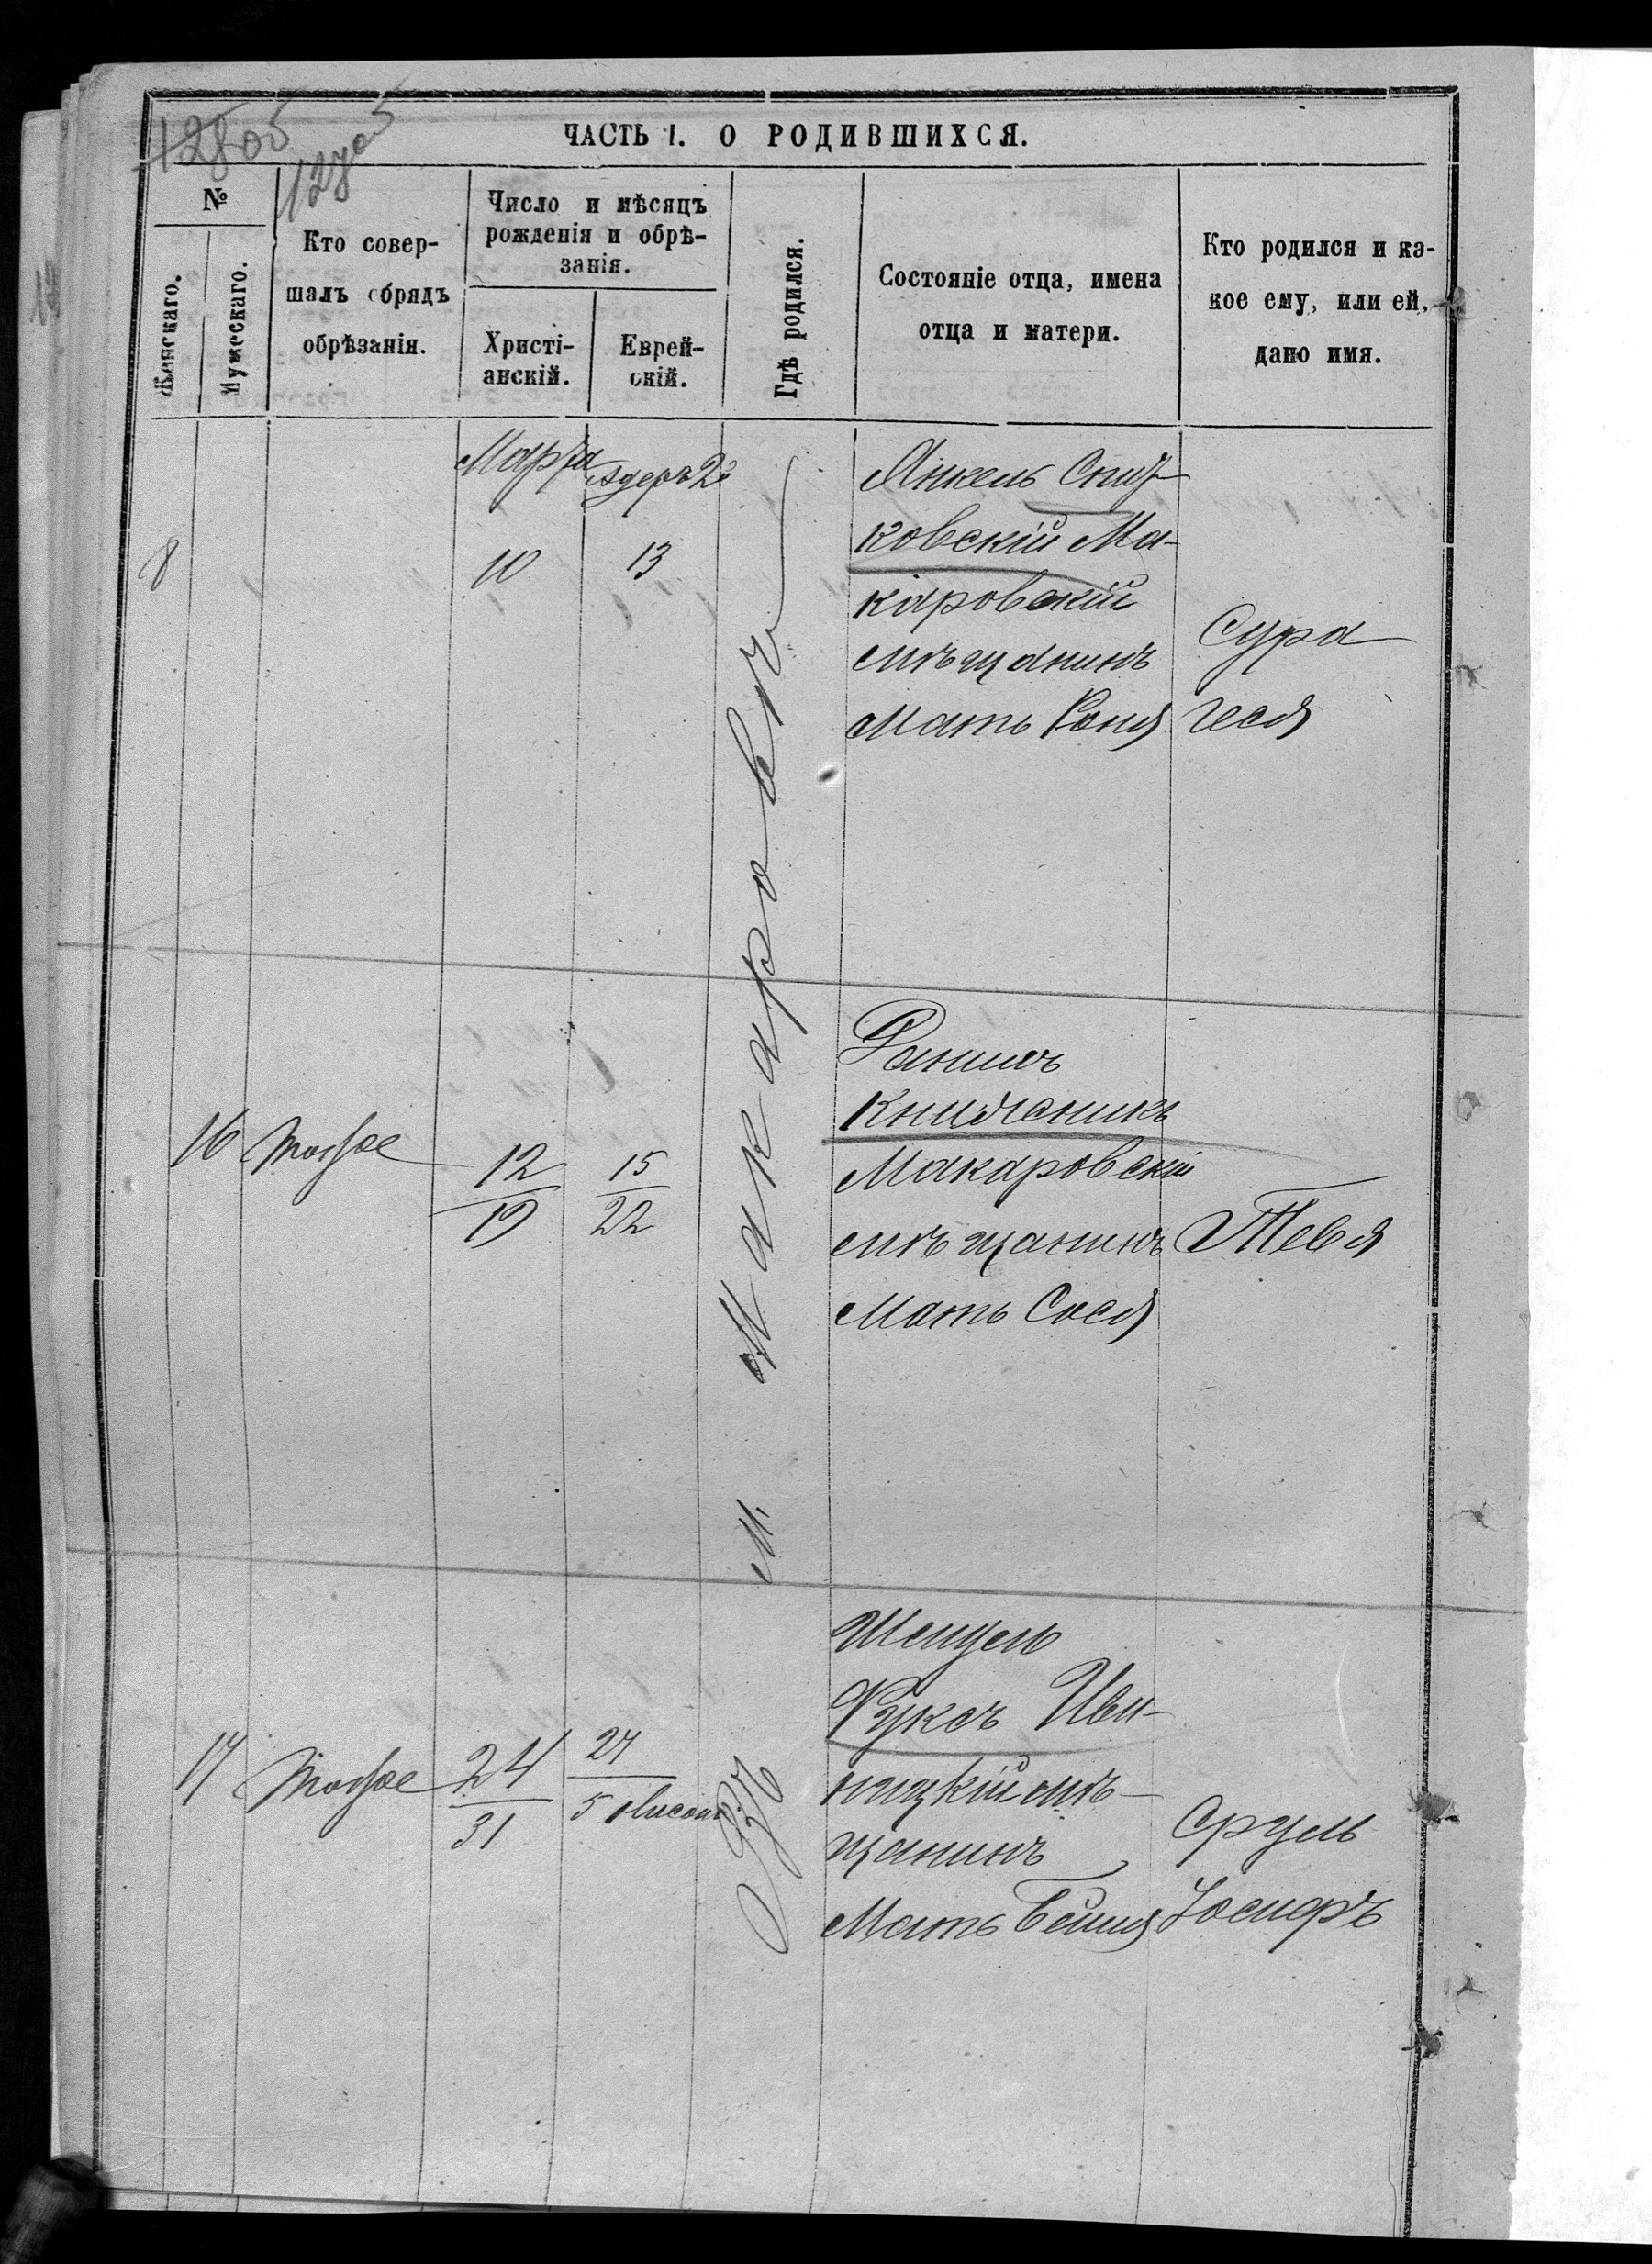 12805
12705
ЧАСТЬ I. О РОДИВШИХСЯ.
№
Женскаго.
Мужескаго.
Кто совер-
шалъ обрядъ
обрѣзанія.
Число и мѣсяцъ
рожденія и обрѣ-
занія.
Христі-
анскій.
Еврей-
скій.
Гдѣ родился.
Состояніе отца, имена
отца и матери.
Кто родился и ка-
кое ему, или ей,
дано имя.
8
Марта
10
Адеръ 2й
13
М. Макаровъ
Янкель Спит-
ковскій Ма-
каровскій
мѣщанинъ
Мать Роня
Сура
Гися
16
Мошке
12
19
15
22
Книжникъ
Макаровскій
мѣщанинъ
Мать Сося
Тевя
17
Мошке
24
31
27
5 Нисонъ
Фуксъ Иви-
ницкій мѣ-
щанинъ
Мать Бейля
Сруль
Іосифъ